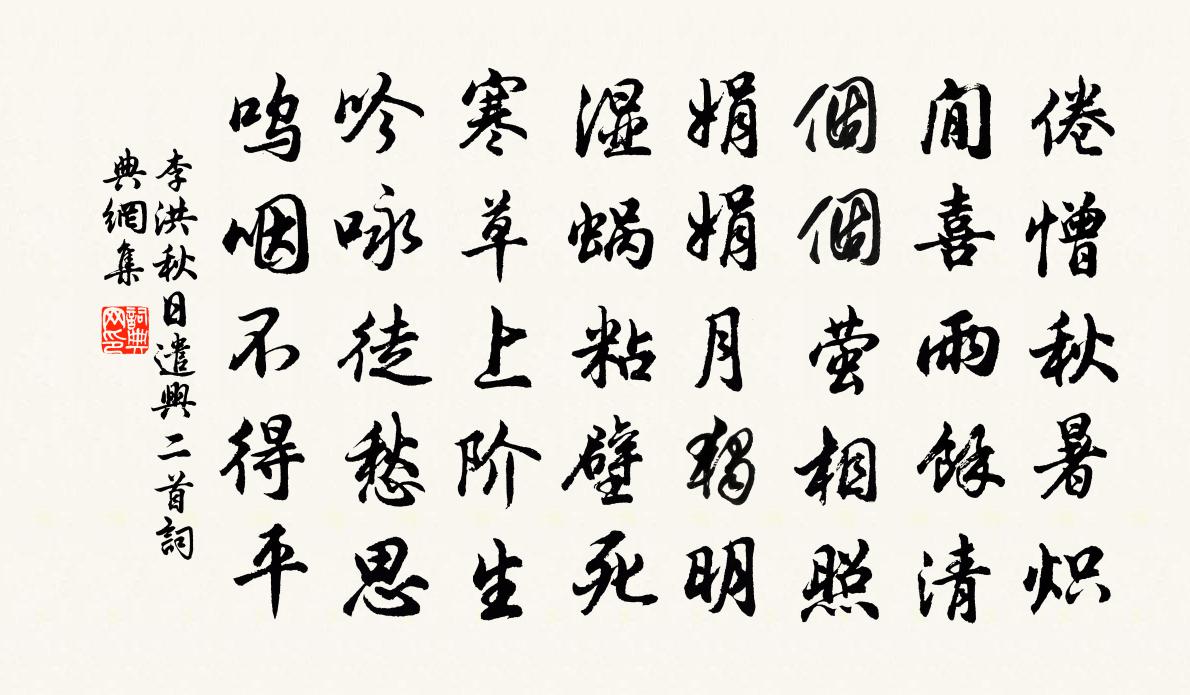 倦憎秋暑炽
閒喜雨馀清
個個萤相照
娟娟月独明
湿蜗粘壁死
寒草上阶生
吟咏徒愁思
呜咽不得平
李洪秋日遣興二首詞
典網集
詞典
网印